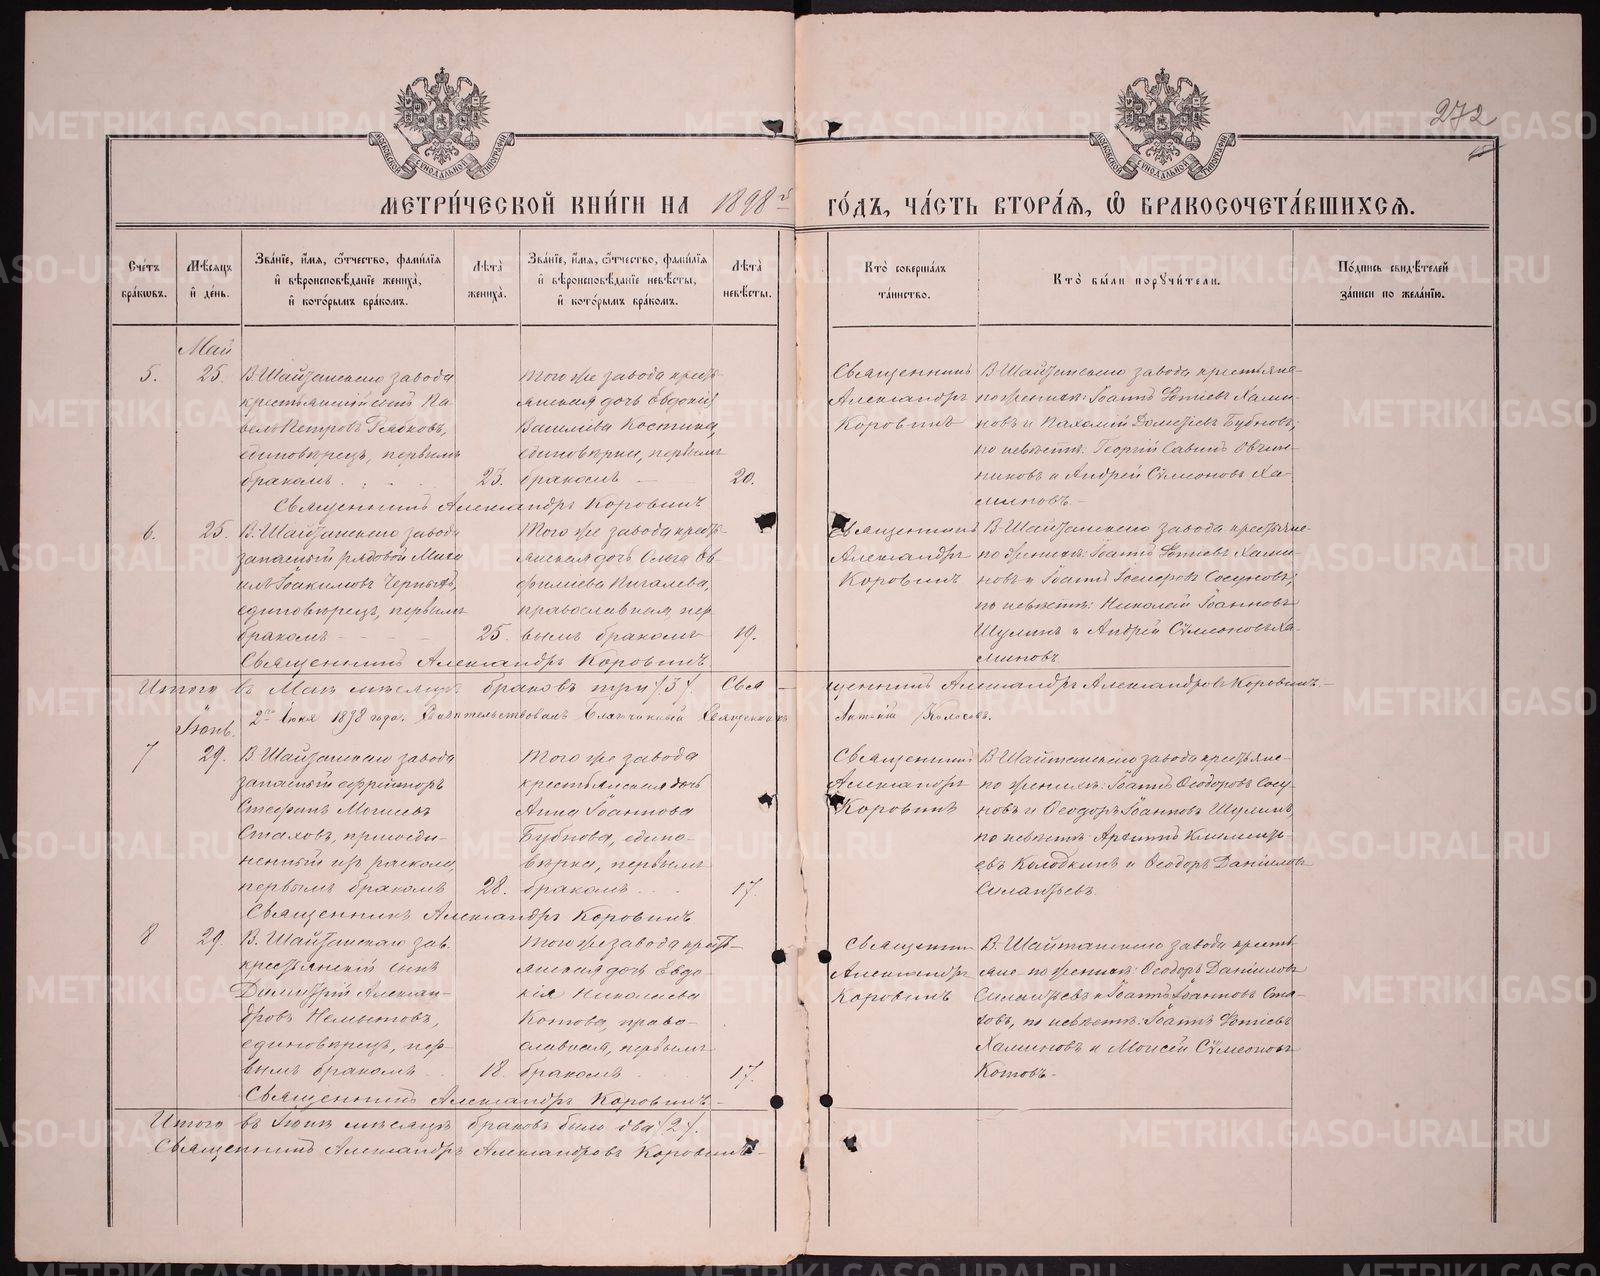 272
МЕТРИ́ЧЕСКОЙ КНИ́ГИ НА 1898 й ГО́ДЪ, ЧА́СТЬ ВТОРА́Я, Ѿ БРАКОСОЧЕТА́ВШИХСЯ.
Сче́тъ бра́кѡвъ.
Мѣ́сяцъ и де́нь.
Зва́нїе, и́мя, ѻ́тчество, фами́лїя и вѣроисповѣ́данїе жениха̀, и кото́рымъ бра́комъ.
Лѣ́та жениха̀.
Зва́нїе, и́мя, ѻ́тчество, фами́лїя и вѣроисповѣ́данїе невѣ́сты, и кото́рымъ бра́комъ.
Лѣ́та невѣ́сты.
Кто̀ соверша́лъ та́инство.
Кто̀ бы́ли поручи́тели.
По́дпись свидѣ́телей за́писи по жела́нїю.
Май
5.
25.
В. Шайтанскаго завода
крестьянскій сынъ Па-
велъ Петровъ Рябковъ,
единовѣрецъ, первымъ
бракомъ.
23.
того же завода кресть-
янская дочь Евдокія
Васильева Костина,
единовѣрка, первымъ
бракомъ
20.
Священникъ
Александръ
Коровинъ
В. Шайтанскаго завода крестьяне
по женихѣ: Іоаннъ Фотіевъ Хами-
новъ и Пахомій Дометіевъ Бубновъ;
по невѣстѣ: Георгій Савинъ Овчин-
никовъ и Андрей Сѵмеоновъ Ха-
миновъ.
Священникъ Александръ Коровинъ
6.
25.
В. Шайтанскаго завода
запасный рядовой Миха-
илъ Іоакимовъ Черныхъ,
единовѣрецъ, первымъ
бракомъ
25.
того же завода кресть-
янская дочь Ольга Ев-
фиміева Пигалева,
православная, пер-
вымъ бракомъ
19.
Священникъ
Александръ
Коровинъ
В. Шайтанскаго завода крестьяне
по женихѣ: Іоаннъ Фотіевъ Хами-
новъ и Іоаннъ Ѳеодоровъ Сосуновъ;
по невѣстѣ: Николай Іоанновъ
Шулинъ и Андрей Сѵмеоновъ Ха-
миновъ
Священникъ Александръ Коровинъ
Итого въ Маѣ мѣсяцѣ браковъ три /3/. Священникъ Александръ Александровъ Коровинъ.
2го Іюня 1898 года. Свидѣтельствовалъ Благочинный Священникъ Антоній Колосовъ.
Іюнь.
7
29.
В. Шайтанскаго завода
запасный ефрейторъ
Стефанъ Моисеевъ
Стаховъ, присоеди-
ненный из раскола,
первымъ бракомъ
28.
того же завода
крестьянская дочь
Анна Іоаннова
Бубнова, едино-
вѣрка, первымъ
бракомъ
17.
Священникъ
Александръ
Коровинъ
В. Шайтанскаго завода крестьяне
по женихѣ: Іоаннъ Ѳеодоровъ Сосу-
новъ и Ѳеодоръ Іоанновъ Шулинъ,
по невѣстѣ: Архипъ Климентъ-
евъ Колодкинъ и Ѳеодоръ Даніиловъ
Силантьевъ.
Священникъ Александръ Коровинъ
8
29
В. Шайтанскаго зав.
крестьянскій сынъ
Димитрій Алексан-
дровъ Немытовъ,
единовѣрецъ, пер-
вымъ бракомъ
18.
того же завода крест-
янская дочь Евдо-
кія Николаева
Котова, право-
славная, первымъ
бракомъ
17.
Священникъ
Александръ
Коровинъ
В. Шайтанскаго завода кресть-
яне по женихѣ: Ѳеодоръ Даніиловъ
Силантьевъ и Іоаннъ Іоанновъ Ста-
ховъ, по невѣстѣ: Іоаннъ Фотіевъ
Хаминовъ и Моисей Сѵмеоновъ
Котовъ.
Священникъ Александръ Коровинъ.
Итого въ Іюнѣ мѣсяцѣ браковъ было два /2/.
Священникъ Александръ Александровъ Коровинъ.